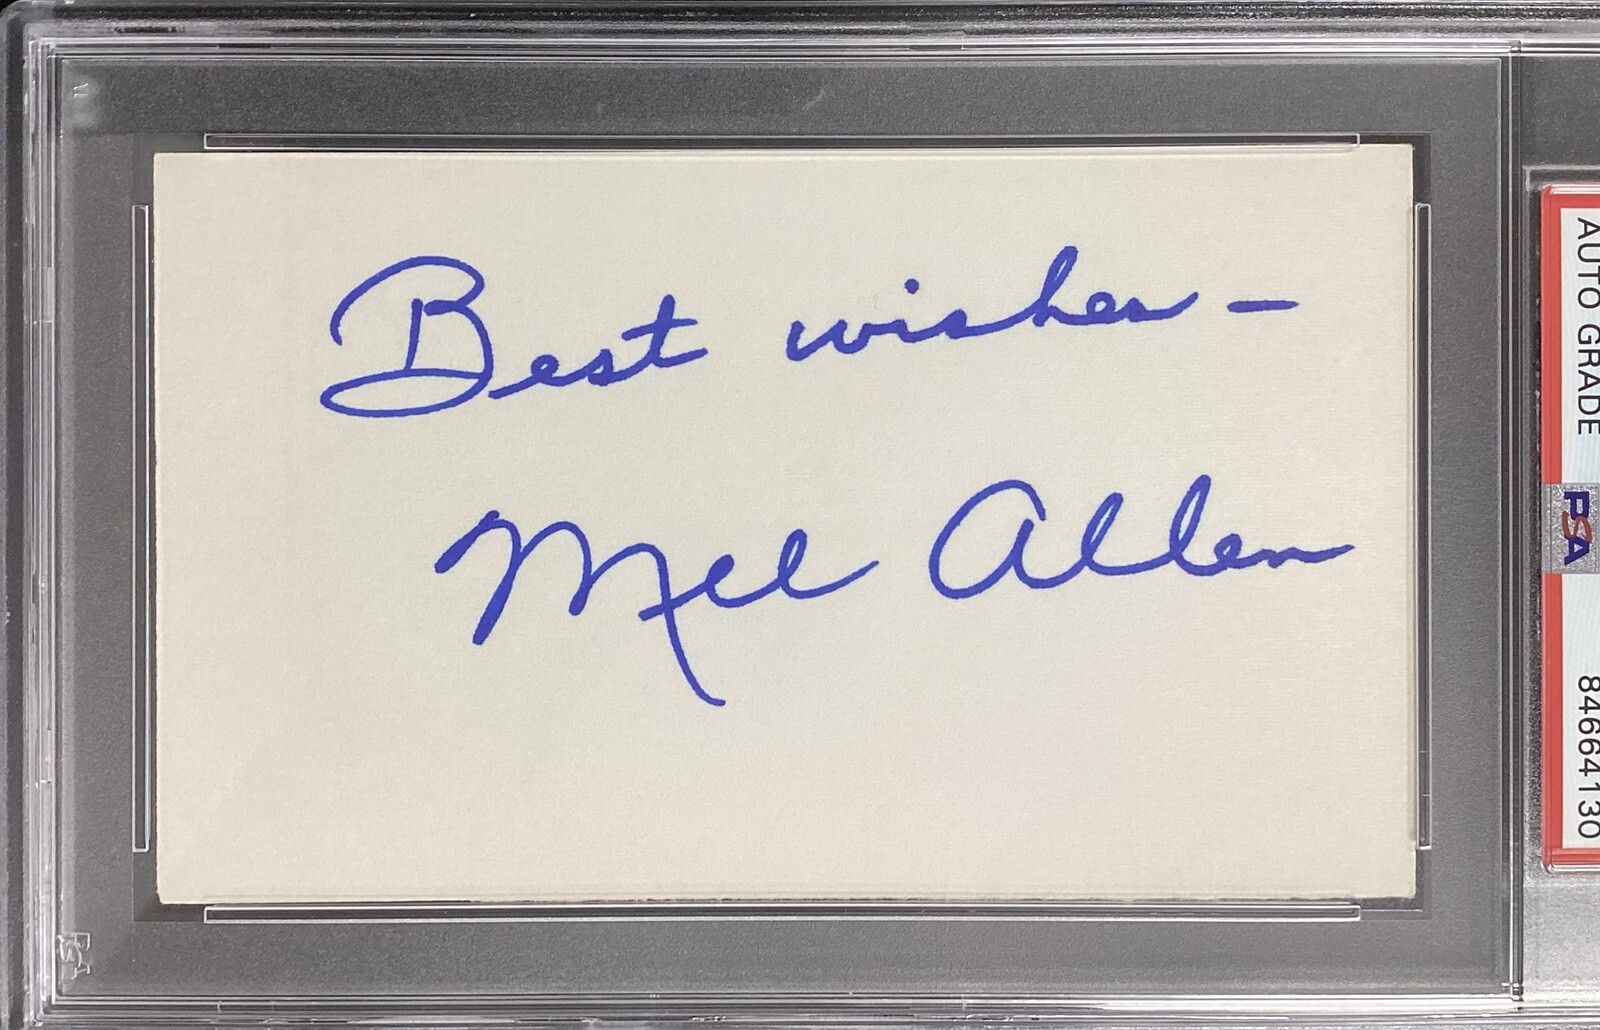 Best wishes -
Mel Allen
AUTO GRADE
PSA
84664130
PSA